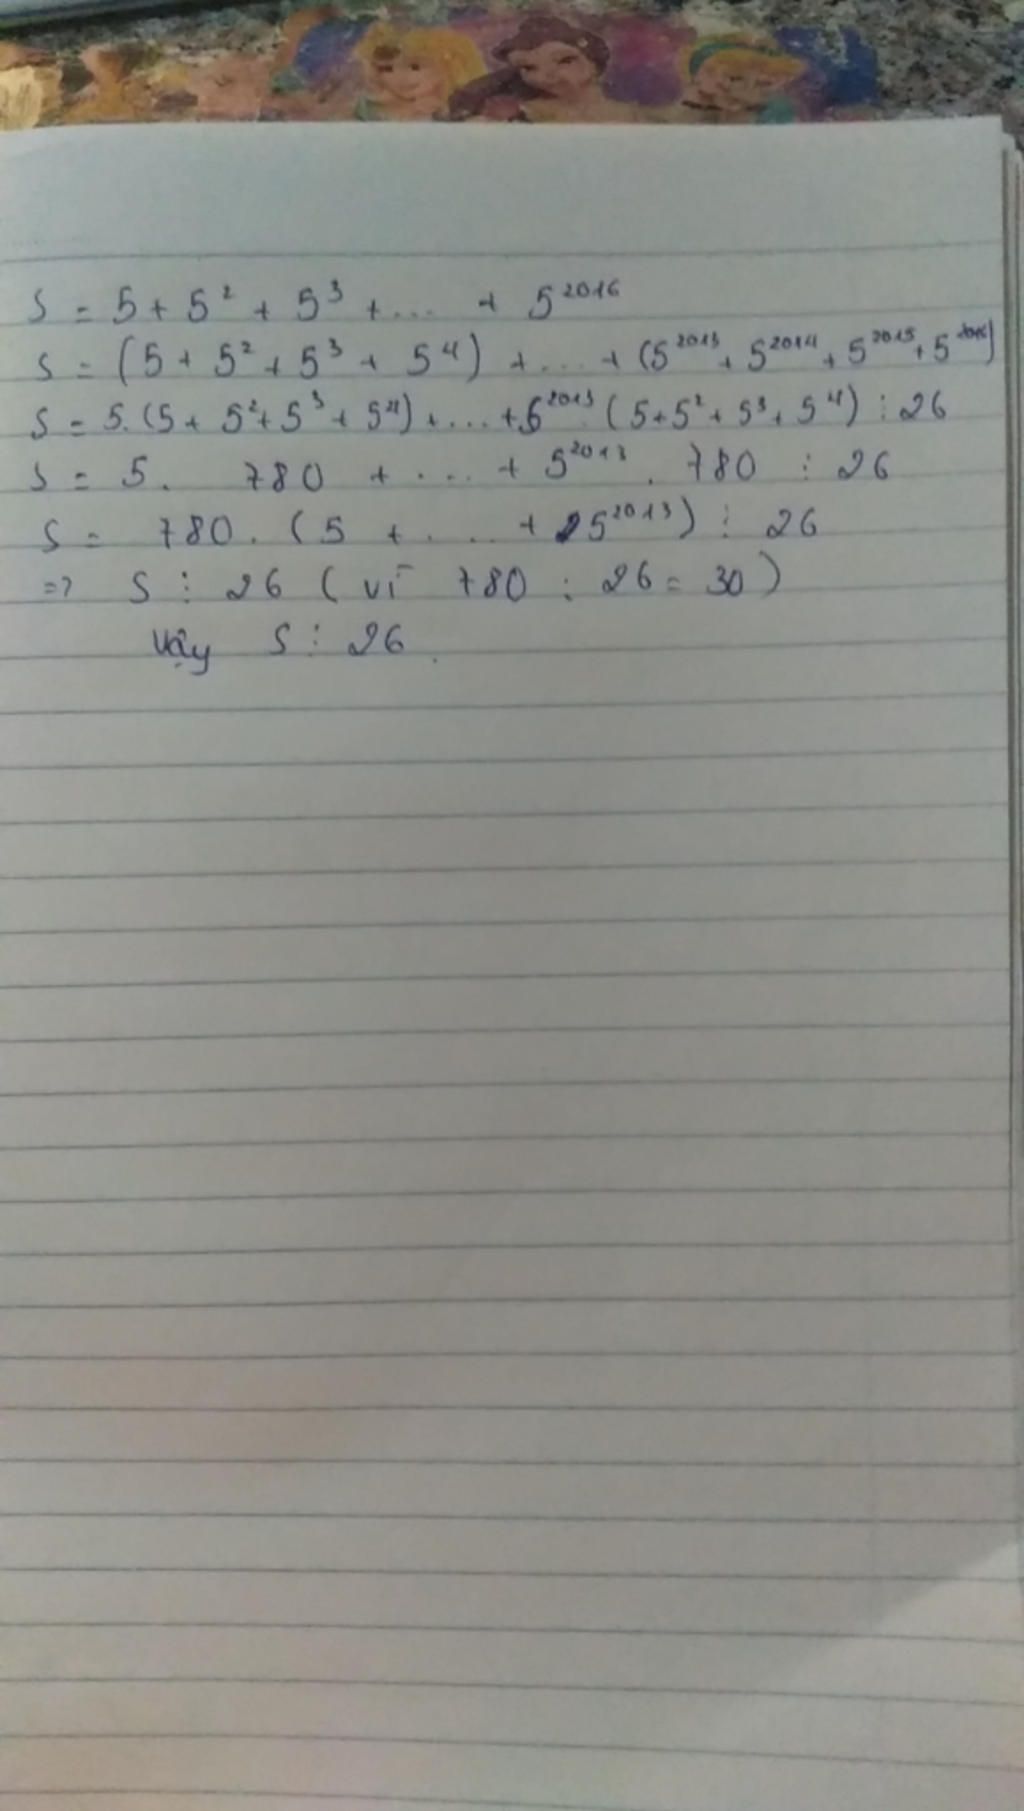 S = 5 + 5² + 5³ + ... + 5²⁰¹⁶
S = (5 + 5² + 5³ + 5⁴) + ... + (5²⁰¹³ + 5²⁰¹⁴ + 5²⁰¹⁵ + 5²⁰¹⁶)
S = 5. (5 + 5² + 5³ + 5⁴) + ... + 5²⁰¹³. (5 + 5² + 5³ + 5⁴) ⋮ 26
S = 5. 780 + .... + 5²⁰¹³. 780 ⋮ 26
S = 780. (5 + .... + 5²⁰¹³) ⋮ 26
=> S ⋮ 26 (vì 780 : 26 = 30)
Vậy S ⋮ 26.